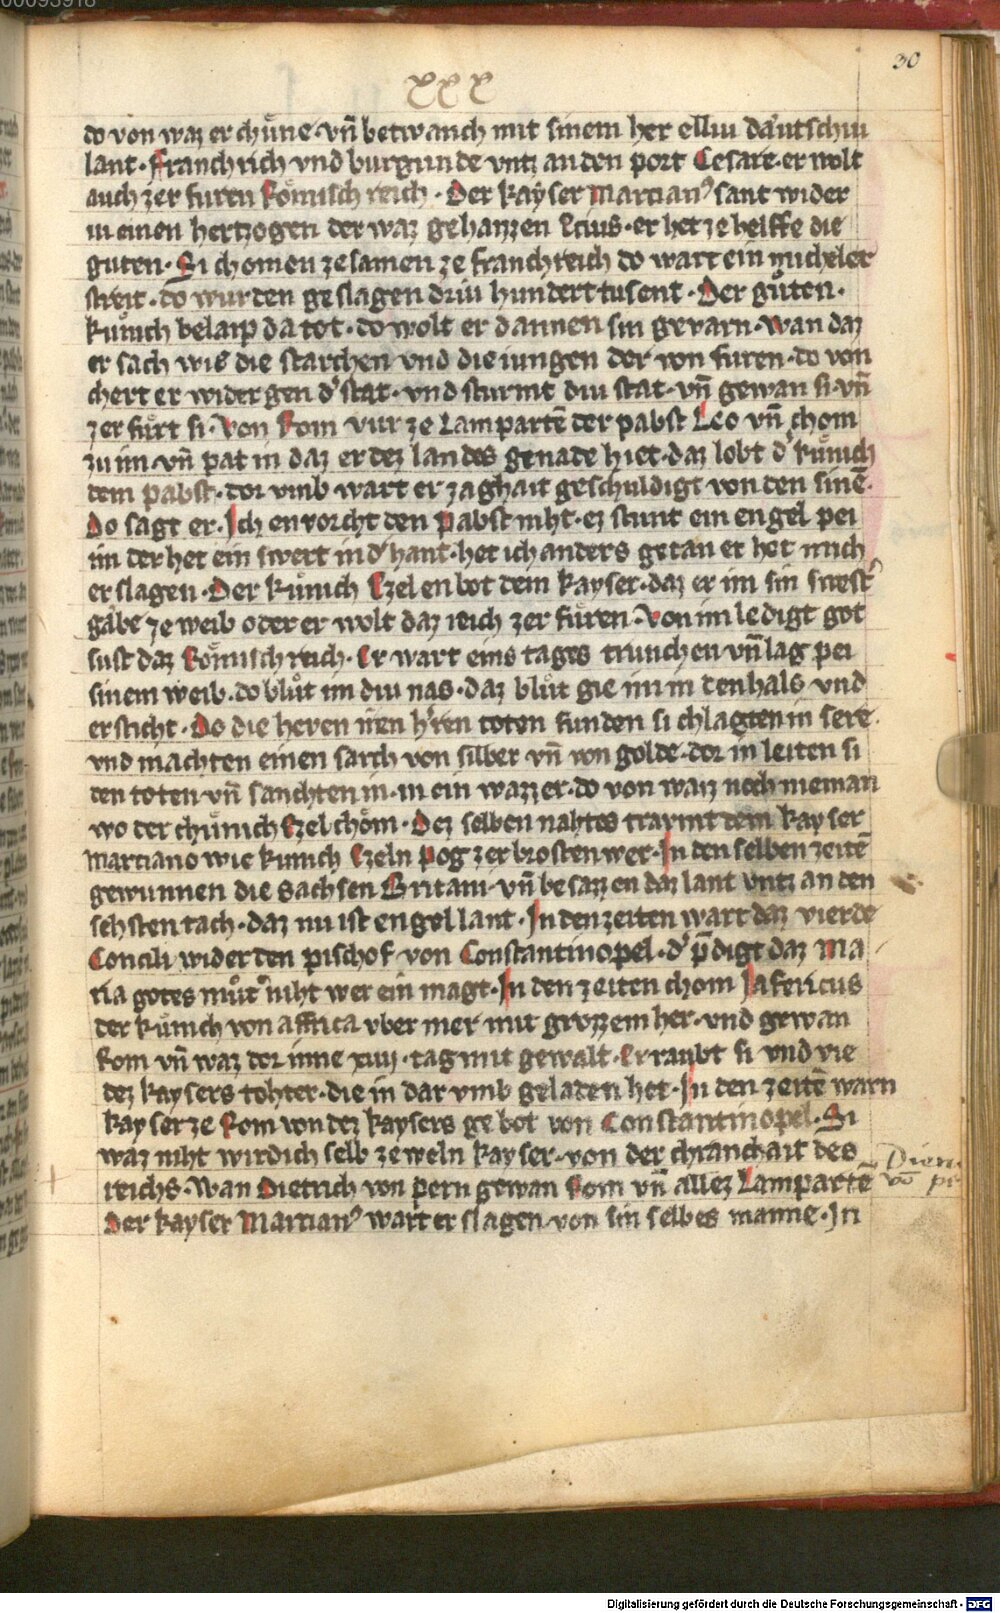 00093918
30
xxx
do von waz er chuͤne · vn̄ betwanch mit sinem her elliu daͤutschiu
lant · franchrich vnd burgunde vntz an den port Cesare · er wolt
auch zer furen Roͤmisch reich · Der kayser Marcian⁹ sant wider
in einen hertzogen der waz gehaizzen Ecius · er het ze helffe die
guten · Si chomen zesamen ze franchreich do wart ein micheler
streit · do wurden geslagen driu hundert tusent · Der guͤten ·
kuͤnich belaip da tot · do wolt er dannen sin gevarn · wan daz
er sach wie die starchen vnd die iungen der von furen · do von
chert er wider gen d' stat · vnd sturmt diu stat · vn̄ gewan si · vn̄
zer fuͤrt si · Von Rom vur ze Lampartē der pabst Leo vn̄ chom
zu im · vn̄ pat in daz er dez landes genade hiet · daz lobt d' kuͤnich
dem pabst · dor vmb wart er zaghait geschuldigt von den sinē ·
Do sagt er · Ich envorcht den pabst niht · ez stunt ein engel pei
im der het ein swert in d' hant · het ich anders getan er het mich
erslagen · Der kuͤnich Ezel enbot dem kayser · daz er im sin swest'
gaͤbe ze weib oder er wolt daz reich zer fuͤren · Von im ledigt got
sust daz Roͤmisch reich · Er wart eins tages trunchen vn̄ lag pei
sinem weib · do bluͤt im diu nas · daz bluͤt gie im in den hals vnd
ersticht · Do die heren iren h'ren toten funden si chlagten in sere ·
vnd machten einen sarch von silber vn̄ von golde · dor in leiten si
den toten vn̄ sanchten in · in ein wazzer · do von waiz noch nieman
wo der chuͤnich Ezel chom · Dez selben nahtes traͮmt dem kayser
Marciano wie kunich Ezeln pog zerbrosten wer · In den selben zeitē
gewunnen die Sachsen Britani · vn̄ besazzen daz lant vntz an den
sehsten tach · daz nu ist engellant · In den zeiten wart daz vierde
Concili wider den pischof von Constantinopel · d' p̄digt daz Ma
ria gotes muͦter niht wer ein magt · In den zeiten chom Jafericus
der kuͤnich von affrica vber mer mit grozzem her · vnd gewan
Rom vn̄ waz dor inne xiiij · tag mit gewalt · Er raubt si vnd vie
dez kaysers tohter · die in dar vmb geladen het · In den zeitē warn
kayser ze Rom von dez kaysers gebot von Constantinopel · Si
waz niht wirdich selb ze weln kayser · von der chranchait des
reichs · Wan Dietrich von pern gewan Rom vn̄ allez Lampartē
Der kayser Marcian⁹ wart erslagen · von sin selbes manne · In
Digitalisierung gefördert durch die Deutsche Forschungsgemeinschaft - DFG